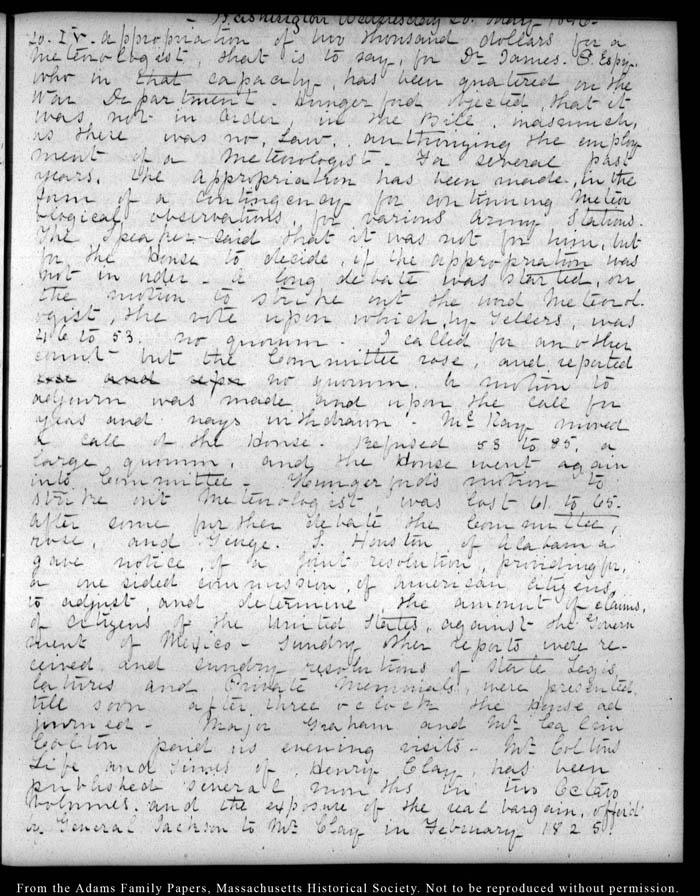 Washington Wednesday 20. May 1846.
20. IV. appropriation of two thousand dollars for a
Meteorologist, that is to say, for Dr. James. P. Espy,
who in that capacity, has been quartered on the
War Department. Hungerford objected, that it
was not in order, in the Bill, inasmuch,
as there was no, Law, authorizing the employ-
ment of a Meteorologist. For several past
years, the appropriation has been made, in the
form of a contingency for continuing Meteor
ological observations, for various Army Stations.
The Speaker said that it was not for him, but
for, the House to decide, if the appropriation was
not in order. A long debate was started, on
the motion to strike out the word Meteorol-
ogist, the vote upon which, by Tellers, was
46 to 53. no quorum. I called for another
count but the Committee rose, and reported
rose and repo no quorum. A motion to
adjourn was made and upon the call for
yeas and nays withdrawn. McKay moved
a call of the House. Refused 53 to 85, a
large quorum, and the House went again
into Committee. Hungerford's motion to
strike out Meteorologist was lost 61. to 65.
After some further debate the Committee,
rose, and George. S. Houston of Alabama
gave notice, of a Joint resolution, providing for,
a one sided commission, of American citizens,
to adjust, and determine, the amount of claims,
of citizens of the United States, against the Govern
ment of Mexico. Sundry other reports were re-
ceived and sundry resolutions of State Legis
latures and Private Memorials, were presented,
till soon after three o'clock the House ad
journed. Major Graham and Mr. Calvin
Colton paid us evening visits. Mr. Colton's
Life and Times of, Henry Clay, has been
published several months in two Octavo
Volumes. and the exposure of the real bargain, offer'd
by General Jackson to Mr. Clay in February 1825
From the Adams Family Papers, Massachusetts Historical Society. Not to be reproduced without permission.